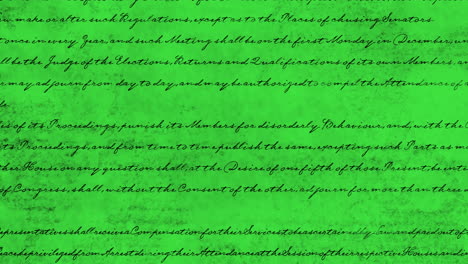 make or alter such Regulations, except as to the Places of chusing Senators.
once in every Year, and such Meeting shall be on the first Monday in December, un
ll be the Judge of the Elections, Returns and Qualifications of its own Members, an
may adjourn from day to day, and may be authorized to compel the Attendance of a
es of its Proceedings, punish its Members for disorderly Behaviour, and, with the C
its Proceedings, and from time to time publish the same, excepting such Parts as m
the House on any question shall, at the Desire of one fifth of those Present, be inte
of Congress, shall, without the Consent of the other, adjourn for more than three
epresentatives shall receive a Compensation for their Services, to be ascertained by Law, and paid out of
eace be privileged from Arrest during their Attendance at the Session of their respective Houses, and